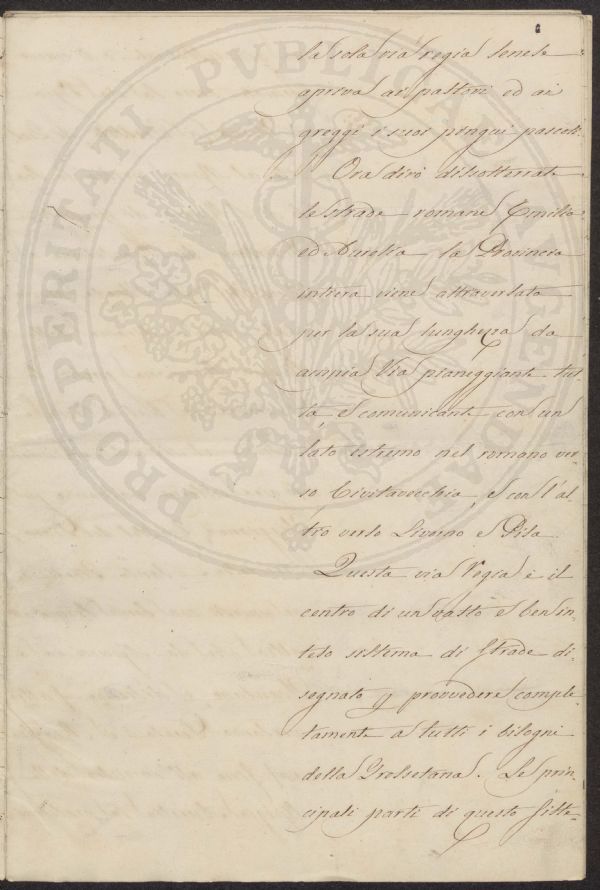 la sola via regia senese
apriva ai pastori ed ai
greggi i suoi pingui pascoli.
Ora dirò dissotterrate
le strade romane Emilia
ed Aurelia la Provincia
intiera viene attraversata
per la sua lunghezza da
ampia Via pianeggiante tut
ta, e comunicante con un
lato estremo nel romano ver
so Civitavecchia, e con l'al
tro verso Livorno e Pisa
Questa via Regia è il
centro di un vasto e ben in
teso sistema di Strade di
segnato p provvedere comple
tamente a tutti i bisogni
della Grossetana. Le prin
cipali parti di questo siste
PROSPERITATI PVBLICAE AVGENDAE